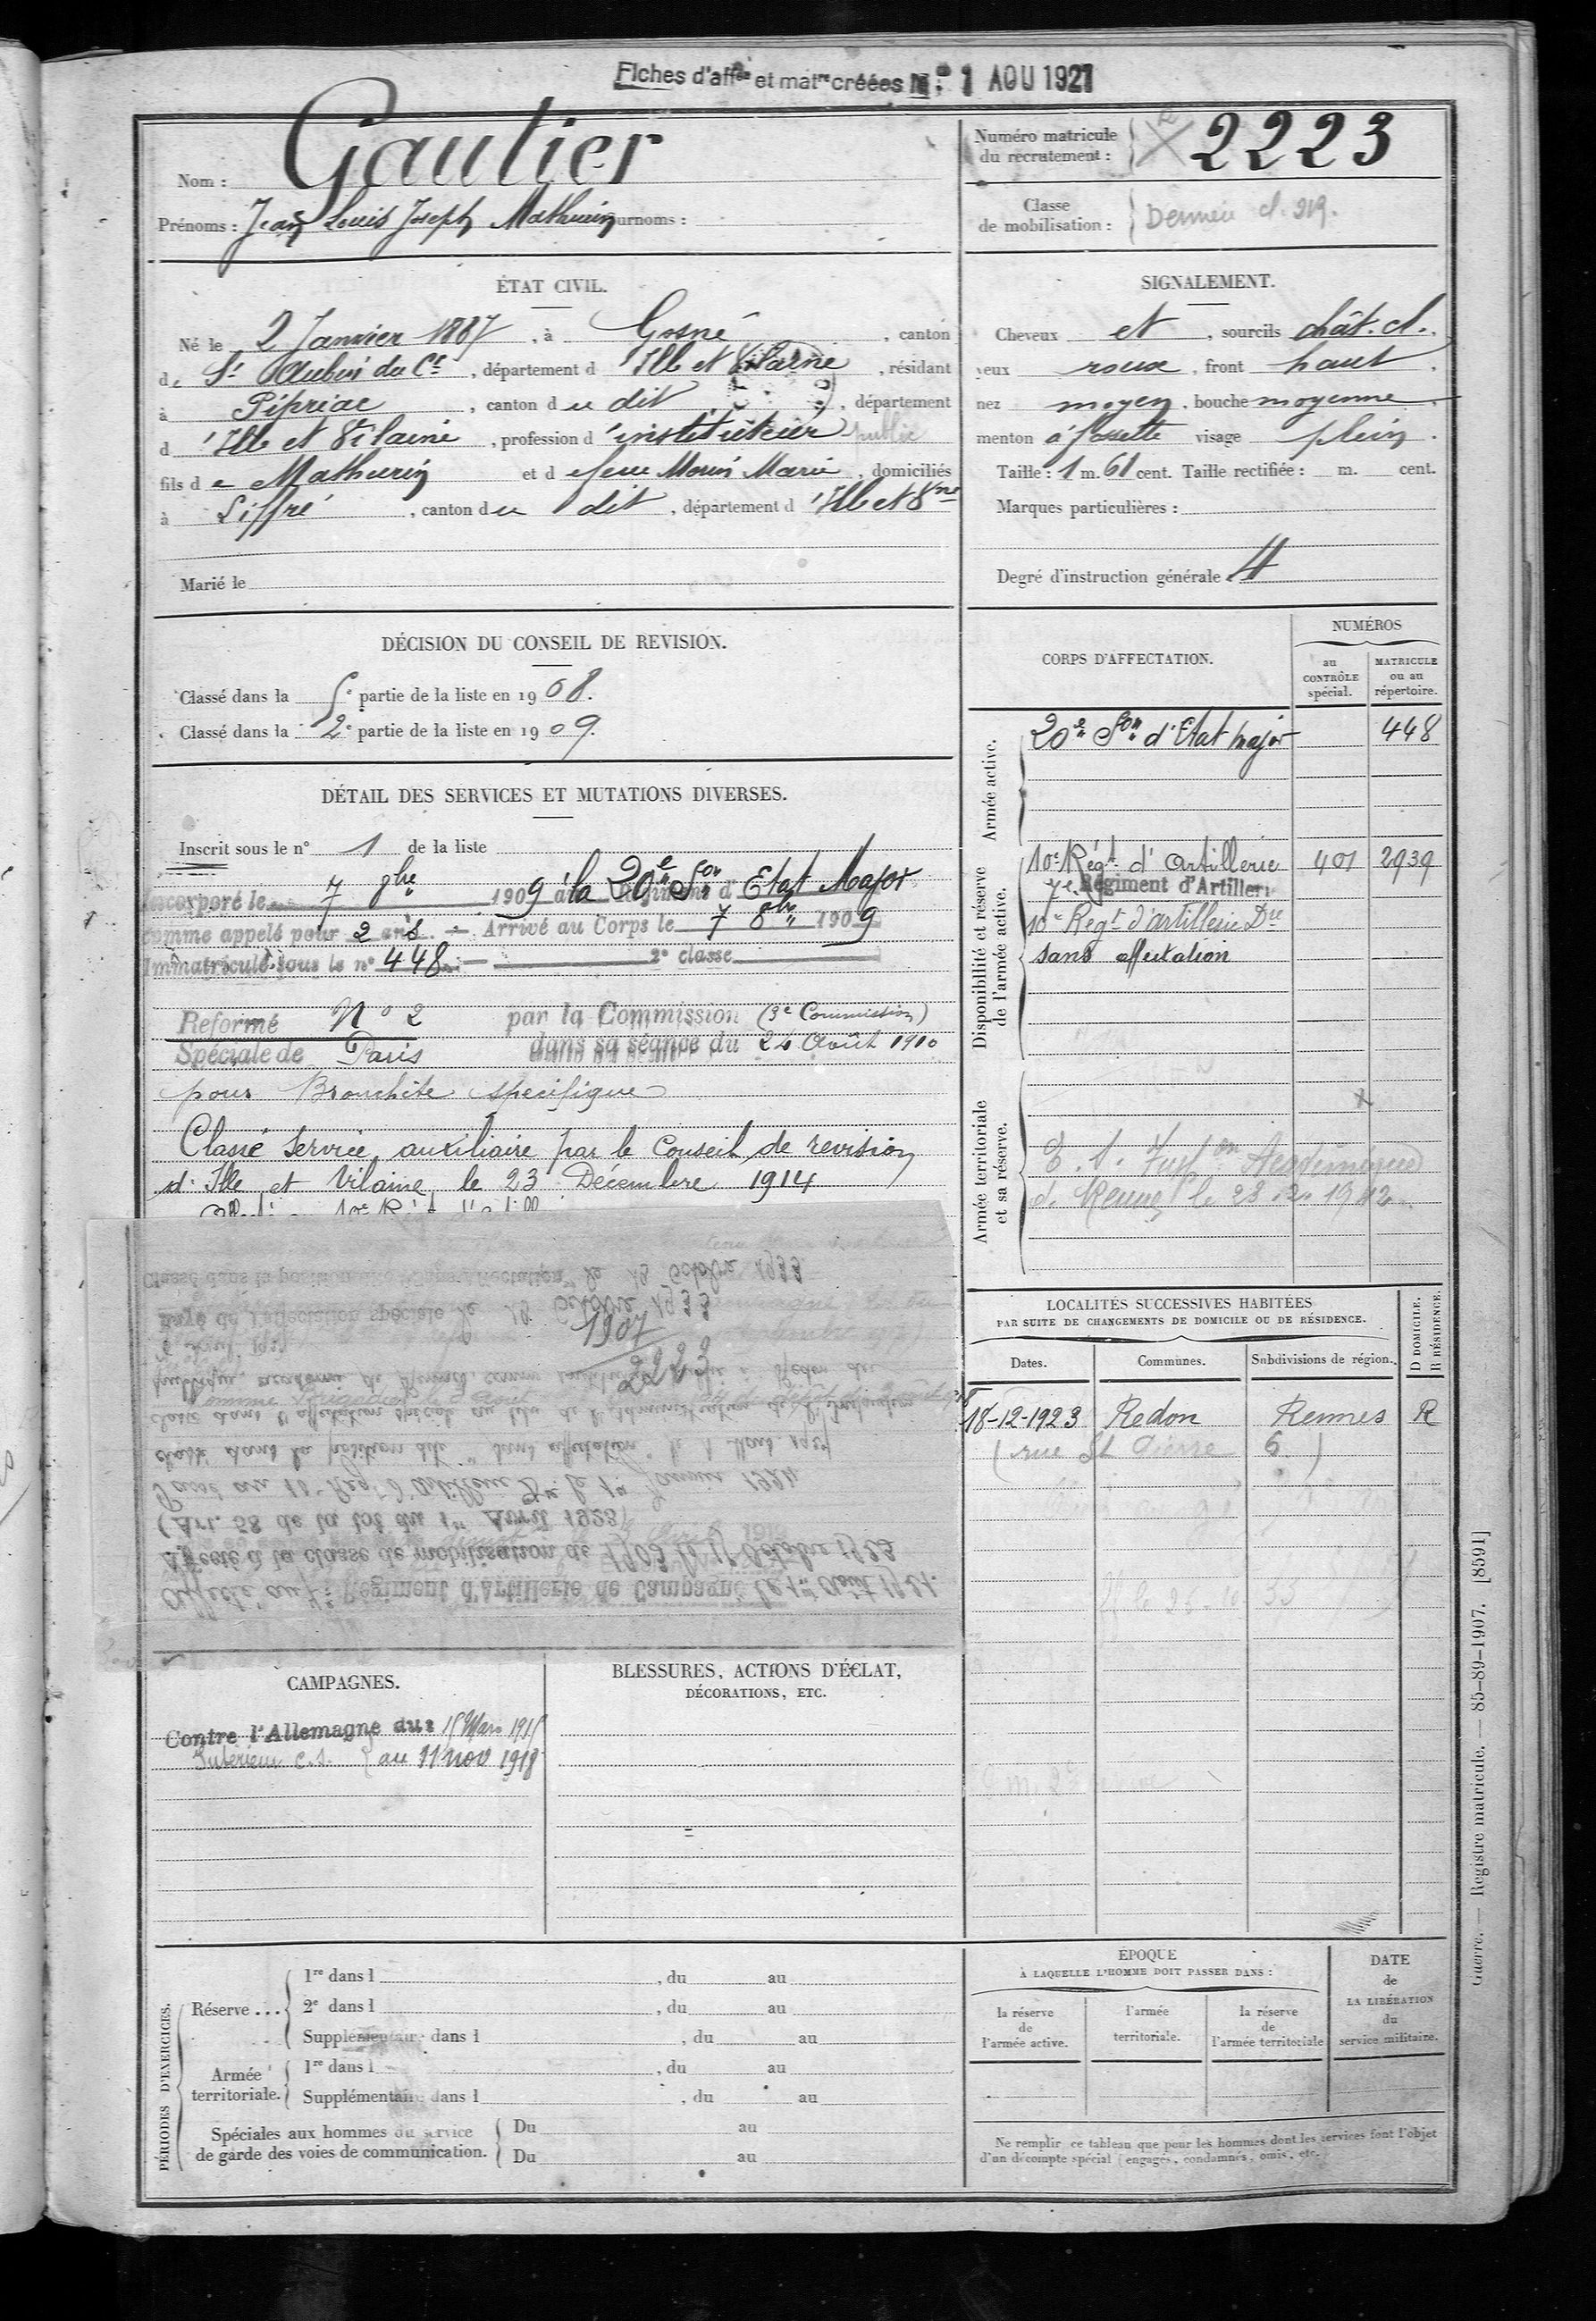 Fiches d'aff^on et mat^re créées le : 1 AOU 1921
Nom : Gautier
Prénoms : Jean Louis Joseph Mathurin Surnoms :
Numéro matricule
du recrutement : 2223
Classe
de mobilisation :
ÉTAT CIVIL.
Né le 2 Janvier 1887, à Gosné, canton
de St Aubin du Ct, département d'Ille et Vilaine, résidant
à Pipriac, canton du dit, département
d'Ille et Vilaine, profession d'instituteur public
fils de Mathurin et de feue Morin Marie, domiciliés
à Liffré, canton du dit, département d'Ille et Vne
Marié le
SIGNALEMENT.
Cheveux et, sourcils chât. cl.
yeux roux, front haut,
nez moyen, bouche moyenne,
menton à fossette visage plein.
Taille : 1 m. 61 cent. Taille rectifiée : m. cent.
Marques particulières :
Degré d'instruction générale : 4
DÉCISION DU CONSEIL DE REVISION.
Classé dans la 5e partie de la liste en 1908.
Classé dans la 2e partie de la liste en 1909.
DÉTAIL DES SERVICES ET MUTATIONS DIVERSES.
Inscrit sous le n° 1 de la liste
Incorporé le 7 8bre 1909 à la 20e Son d'Etat Major
comme appelé pour 2 ans. — Arrivé au Corps le 7 8bre 1909
Immatriculé sous le n° 448. — 2e classe
Réformé N° 2 par la Commission (3e Commission)
Spéciale de Paris dans sa séance du 24 Août 1910
pour Bronchite spécifique
Classé service auxiliaire par le Conseil de revision
d'Ille et Vilaine le 23 Décembre 1914
Classé dans la position dite "Sans affectation" le 18 Octobre 1933
Rayé de l'affectation spéciale le 18 Octobre 1933
1907
2223
classé dans l'affectation spéciale au titre de l'administration de l'Instruction
classé dans la position dite "sans affectation" le 1 Mars 1927
Passé au 10e Régt d'Artillerie Dre le 1er Janvier 1924
(Art. 58 de la loi du 1er Avril 1923)
Affecté à la classe de mobilisation de 1903 le 18 Octobre 1923
Affecté au 7e Régiment d'Artillerie de Campagne le 1er Août 1921.
CORPS D'AFFECTATION.
NUMÉROS
au
CONTRÔLE
spécial.
MATRICULE
ou au
répertoire.
Armée active.
20e Son d'Etat major 448
Disponibilité et réserve
de l'armée active.
10e Régt d'Artillerie 401 2939
7e Régiment d'Artillerie
10e Regt d'artillerie Dre
sans affectation
Armée territoriale
et sa réserve.
LOCALITÉS SUCCESSIVES HABITÉES
PAR SUITE DE CHANGEMENTS DE DOMICILE OU DE RÉSIDENCE.
Dates. Communes. Subdivisions de région. D DOMICILE. R RÉSIDENCE.
18-12-1923 Redon Rennes R
(rue St Pierre 6)
CAMPAGNES.
Contre l'Allemagne du : 15 Mars 1915
Intérieur C.S. au 11 nov 1918
BLESSURES, ACTIONS D'ÉCLAT,
DÉCORATIONS, ETC.
PÉRIODES D'EXERCICES.
Réserve ...
1re dans l , du au
2e dans l , du au
Supplémentaire dans l , du au
Armée
territoriale.
1re dans l , du au
Supplémentaire dans l , du au
Spéciales aux hommes du service
de garde des voies de communication.
Du au
Du au
ÉPOQUE
À LAQUELLE L'HOMME DOIT PASSER DANS :
la réserve
de
l'armée active.
l'armée
territoriale.
la réserve
de
l'armée territoriale
DATE
de
LA LIBÉRATION
du
service militaire.
Ne remplir ce tableau que pour les hommes dont les services font l'objet
d'un décompte spécial (engagés, condamnés, omis, etc.
Guerre. — Registre matricule. — 85-89-1907. [8591]